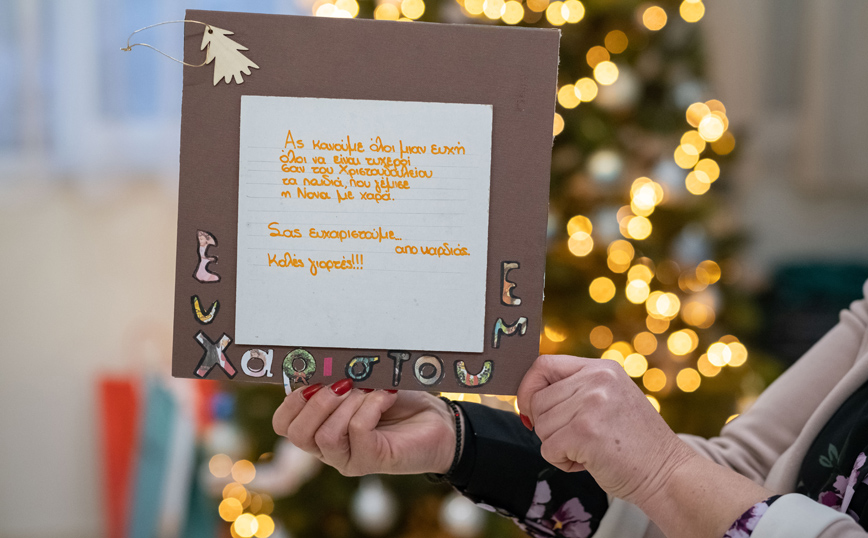 Ας κανούμε όλοι μιαν ευχή
όλοι να είναι τυχεροί
σαν του Χριστουδουλείου
τα παιδιά, που γέμισε
η Νόνα με χαρά.
Σας ευχαριστούμε...
απο καρδιάς.
Καλές γιορτές!!!
Ευχαριστουμε